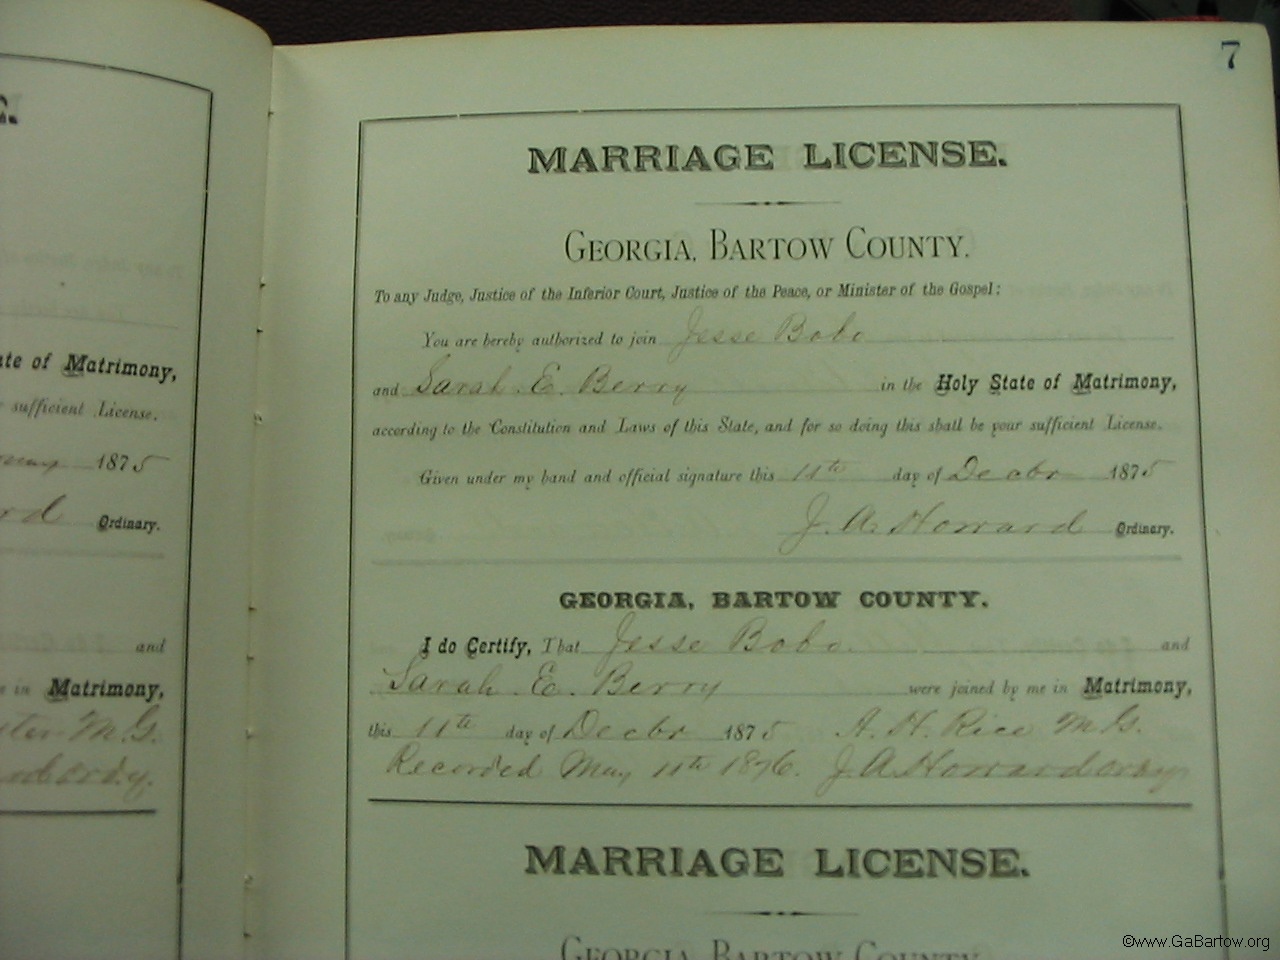 7
MARRIAGE LICENSE.
GEORGIA, BARTOW COUNTY.
To any Judge, Justice of the Inferior Court, Justice of the Peace, or Minister of the Gospel:
You are hereby authorized to join Jesse Bobo
and Sarah E. Berry in the Holy State of Matrimony,
according to the Constitution and Laws of this State, and for so doing this shall be your sufficient License.
Given under my hand and official signature this 11th day of Decbr 1875
J. A. Howard Ordinary.
GEORGIA, BARTOW COUNTY.
I do Certify, That Jesse Bobo and
Sarah E. Berry were joined by me in Matrimony,
this 11th day of Decbr 1875 A. H. Rice M.G.
Recorded May 11th 1876. J A Howard Ordy
MARRIAGE LICENSE.
GEORGIA, BARTOW COUNTY.
E.
of Matrimony,
sufficient License.
1875
Ordinary.
and
in Matrimony,
M.G.
©www.GaBartow.org